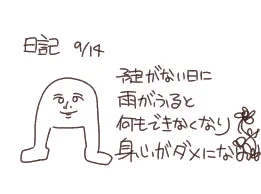 日記 9/14
予定がない日に
雨がふると
何もできなくなり
身心がダメにな